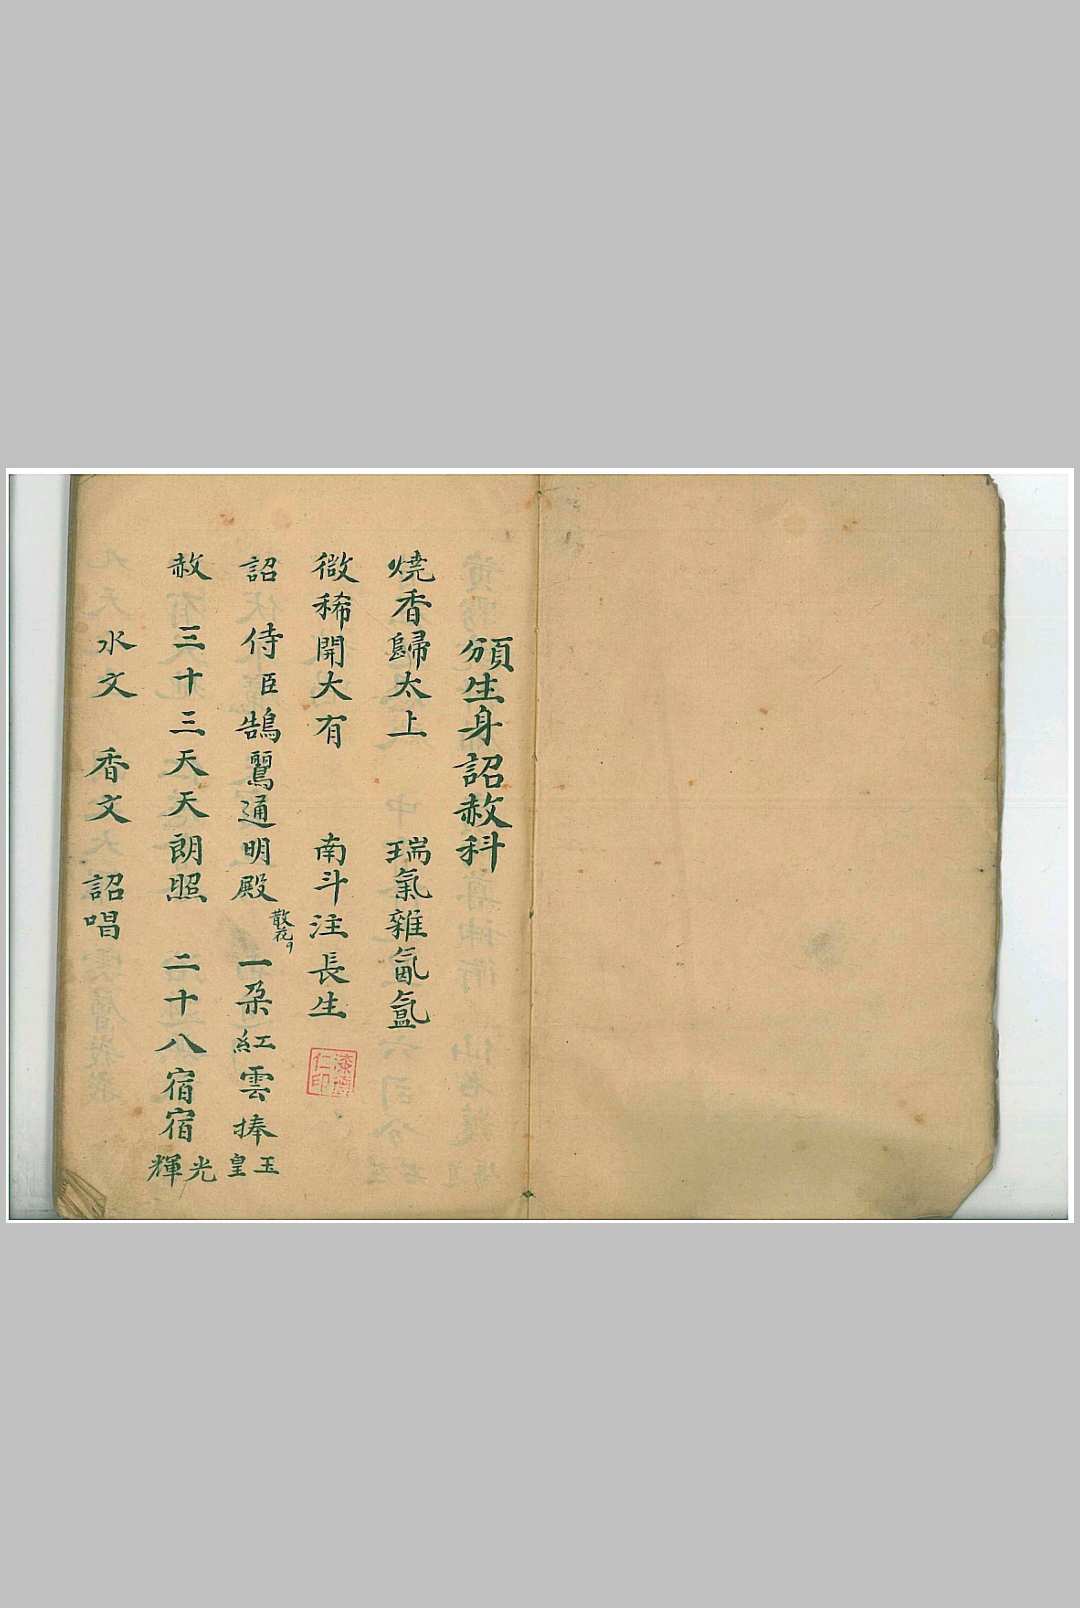 頒生身詔赦科
燒香歸太上　瑞氣雜氤氳
微稀開大有　南斗注長生
詔　侍臣鵠鷖通明殿　散花　一朶紅雲捧玉皇
赦　三十三天天朗照　二十八宿宿光輝
水文　香文　詔唱